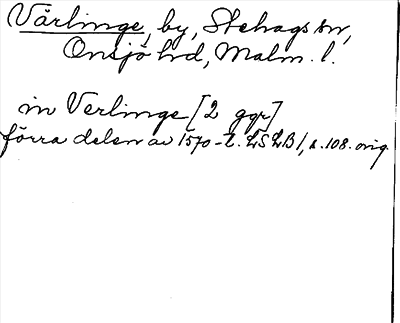 Värlinge, by, Stehags sn,
Onsjö hd, Malm. l.
in Verlinge [2 ggr]
förra delen av 1570-t. LSLB 1, s. 108. orig.